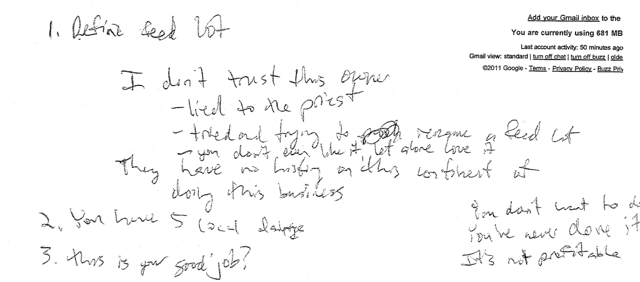 1. Define Feed Lot
Add your Gmail inbox to the
You are currently using 681 MB
Last account activity: 50 minutes ago
Gmail view: standard | turn off chat | turn off buzz | olde
©2011 Google - Terms - Privacy Policy - Buzz Priv
I don't trust this owner
- lied to the priest
- tried and trying to rename a feed lot
- you don't even like it, let alone love it
They have no history on this continent of
doing this business
2. You have 5 local
3. this is your good job?
You don't want to d
You've never done it
It's not profitable